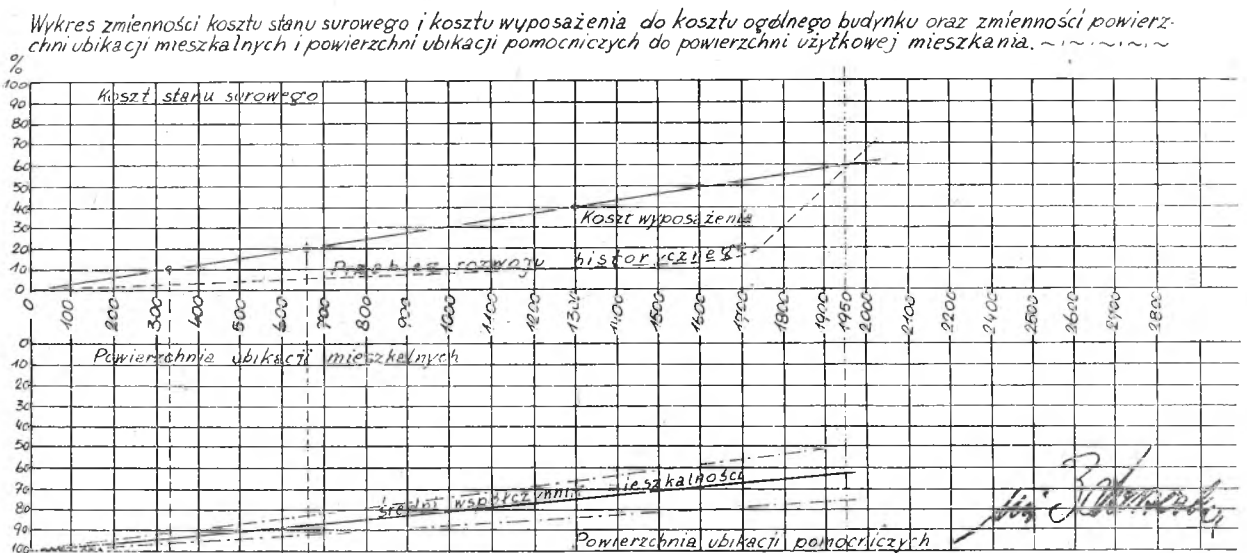 Wykres zmienności kosztu stanu surowego i kosztu wyposażenia do kosztu ogólnego budynku oraz zmienności powierz-
chni ubikacji mieszkalnych i powierzchni ubikacji pomocniczych do powierzchni użytkowej mieszkania.
%
100
90
80
70
60
50
40
30
20
10
0
Koszt stanu surowego
Koszt wyposażenia
Przebieg rozwoju historycznego
0 100 200 300 400 500 600 700 800 900 1000 1100 1200 1300 1400 1500 1600 1700 1800 1900 1950 2000 2100 2200 2300 2400 2500 2600 2700 2800
0
10
20
30
40
50
60
70
80
90
100
Powierzchnia ubikacji mieszkalnych
średni współczynnik mieszkalności
Powierzchnia ubikacji pomocniczych